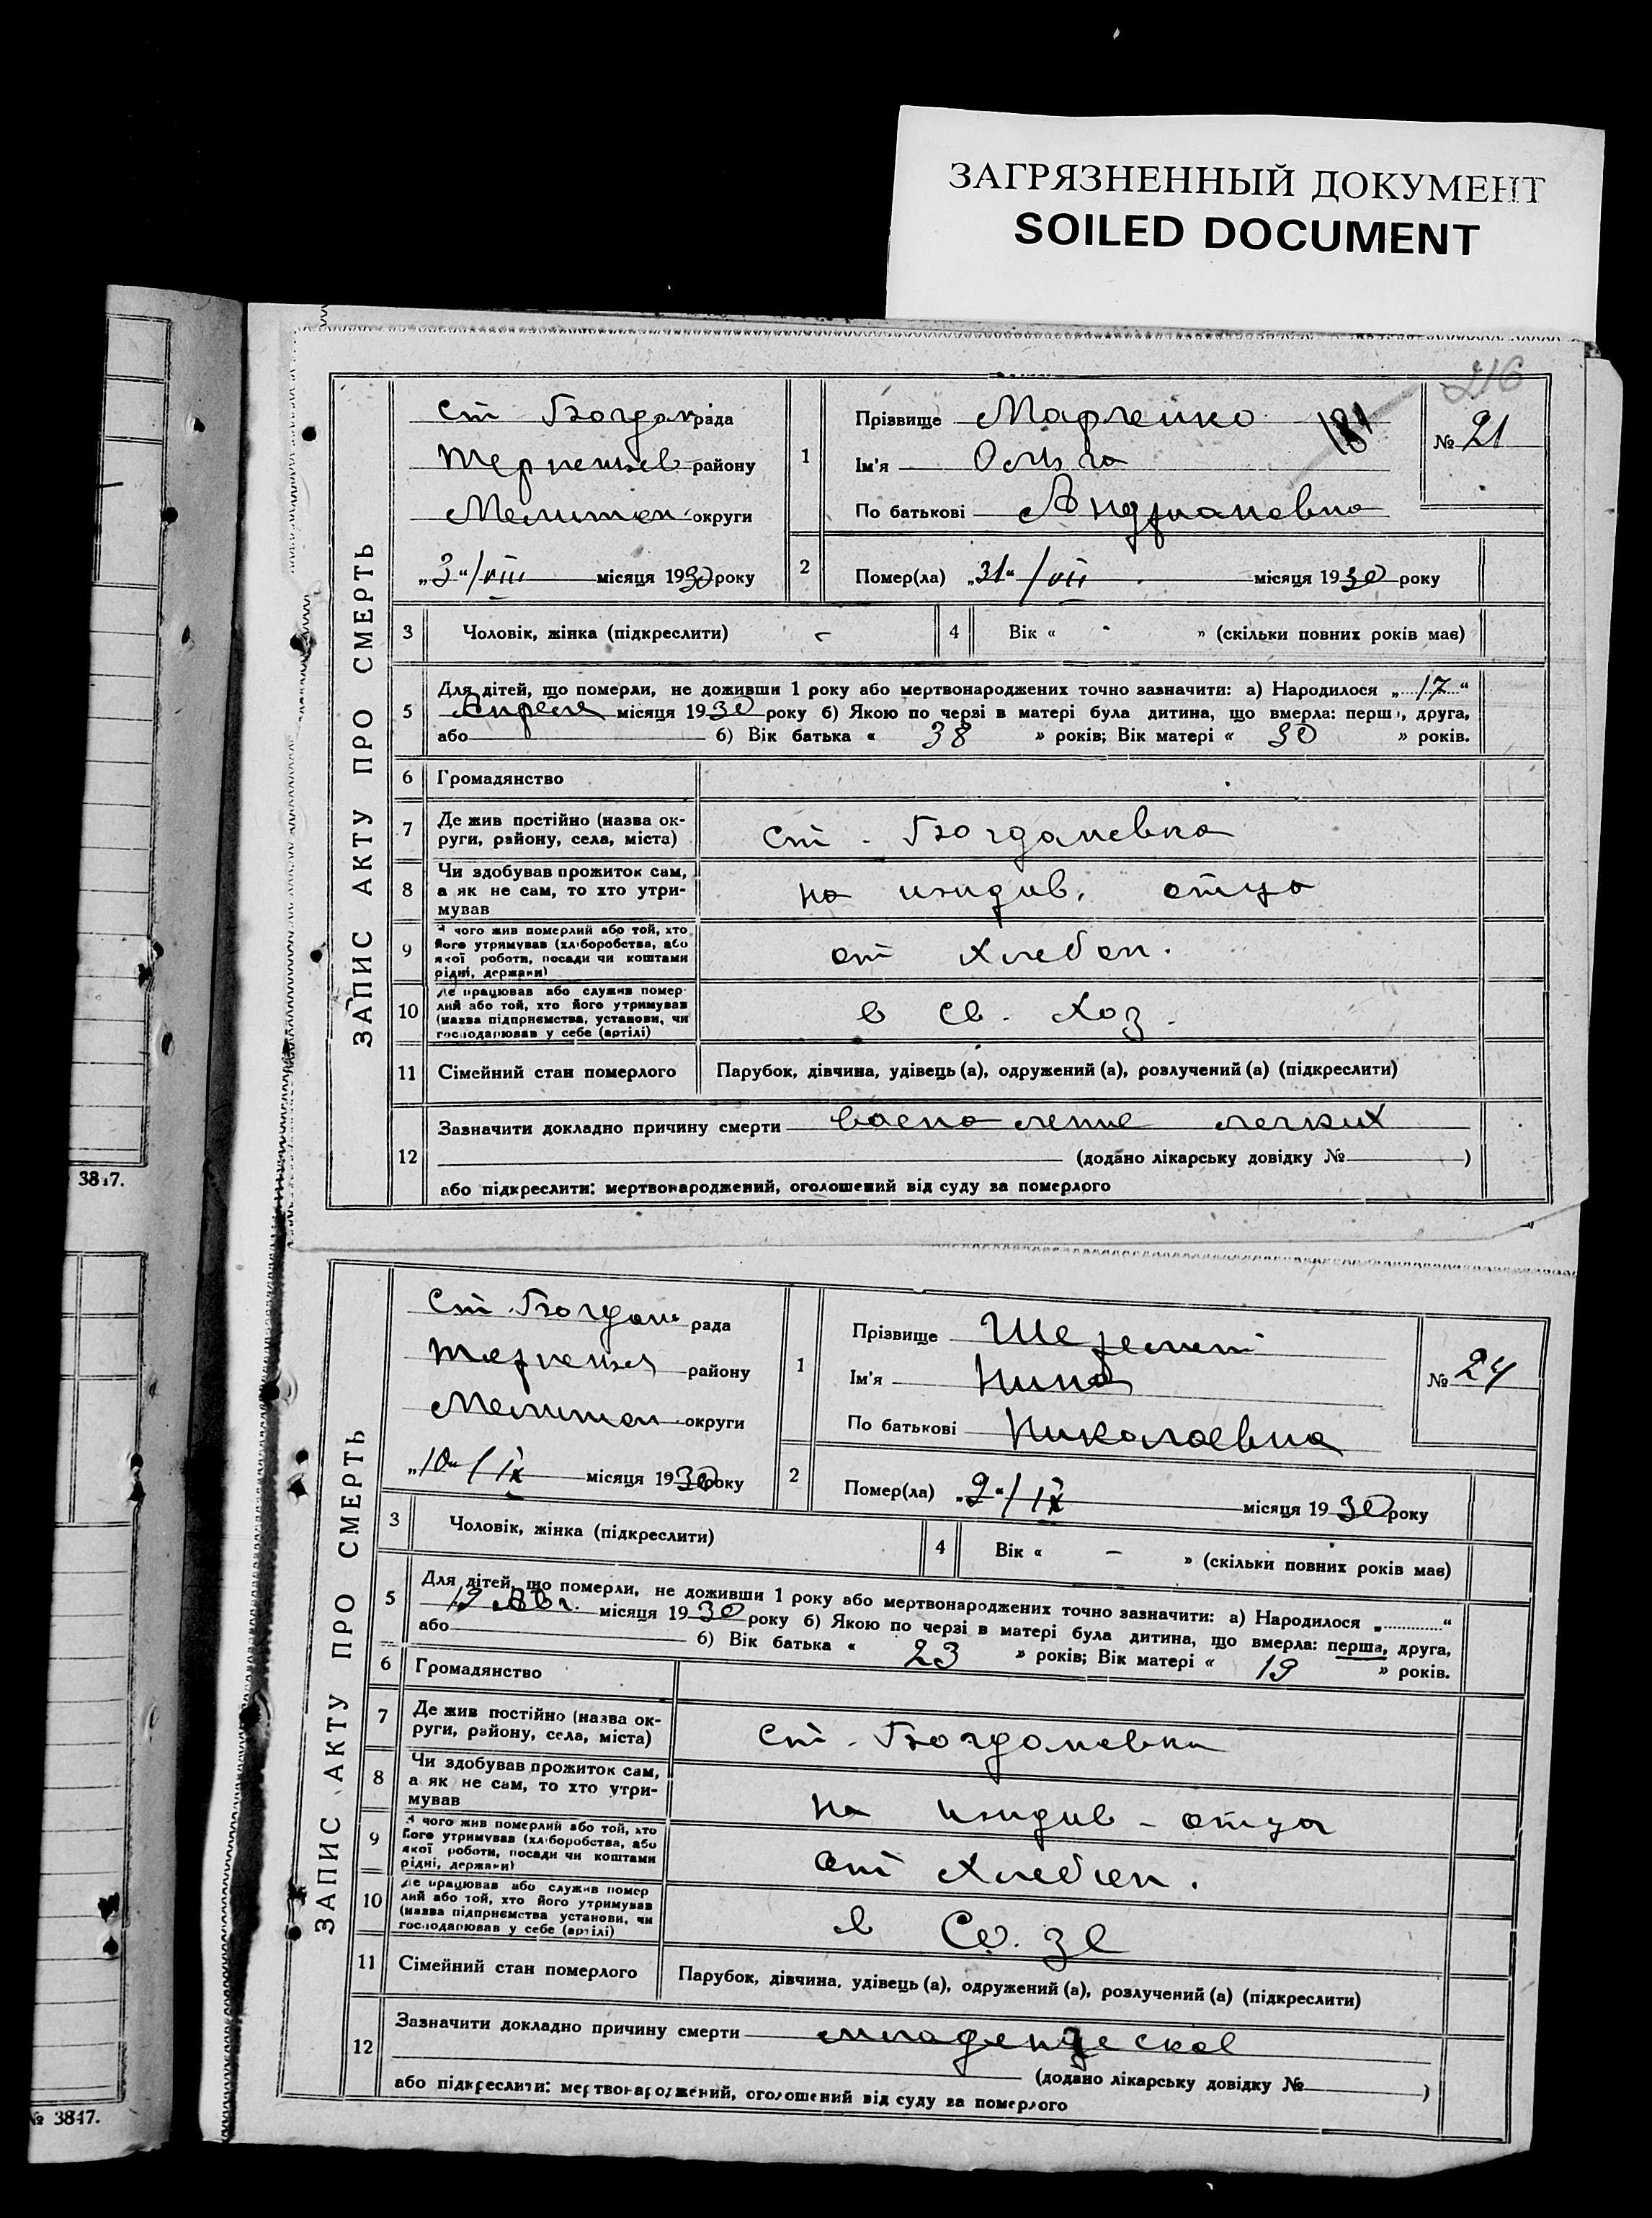 ЗАГРЯЗНЕННЫЙ ДОКУМЕНТ
SOILED DOCUMENT
216
ЗАПИС АКТУ ПРО СМЕРТЬ
Ст Богдан рада
Терпеньев району
Мелитоп округи
„3“/VIII місяця 1930 року
1
Прізвище Марченко
181
Ім'я Ольга
По батькові Андриановна
№ 21
2
Помер(ла) „31“/VII місяця 1930 року
3 Чоловік, жінка (підкреслити)
4 Вік « » (скільки повних років має)
5 Для дітей, що померли, не доживши 1 року або мертвонароджених точно зазначити: а) Народилося „17“
Апреля місяця 1930 року б) Якою по черзі в матері була дитина, що вмерла: перша, друга,
або б) Вік батька « 38 » років; Вік матері « 30 » років.
6 Громадянство
7 Де жив постійно (назва ок-
руги, району, села, міста)
ст. Богдановка
8 Чи здобував прожиток сам,
а як не сам, то хто утри-
мував
на иждив. отца
9 З чого жив померлий або той, хто
його утримував (хліборобства, або
якої роботи, посади чи коштами
рідні, держави)
от хлебоп.
10 Де працював або служив помер-
лий або той, хто його утримував
(назва підприємства, установи, чи
господарював у себе (артілі)
в св. хоз.
11 Сімейний стан померлого Парубок, дівчина, удівець (а), одружений (а), розлучений (а) (підкреслити)
12 Зазначити докладно причину смерти воспаление легких
(додано лікарську довідку № )
або підкреслити: мертвонароджений, оголошений від суду за померлого
ЗАПИС АКТУ ПРО СМЕРТЬ
Ст. Богдан рада
Терпеньев району
Мелитоп округи
„10“/IX місяця 1930 року
1
Прізвище Шеремет
Ім'я Нина
По батькові Николаевна
№ 24
2
Помер(ла) „2“/IX місяця 1930 року
3 Чоловік, жінка (підкреслити)
4 Вік « – » (скільки повних років має)
5 Для дітей, що померли, не доживши 1 року або мертвонароджених точно зазначити: а) Народилося „ “
19 Авг. місяця 1930 року б) Якою по черзі в матері була дитина, що вмерла: перша, друга,
або б) Вік батька « 23 » років; Вік матері « 19 » років.
6 Громадянство
7 Де жив постійно (назва ок-
руги, району, села, міста)
ст. Богдановка
8 Чи здобував прожиток сам,
а як не сам, то хто утри-
мував
на иждив - отца
9 З чого жив померлий або той, хто
його утримував (хліборобства, або
якої роботи, посади чи коштами
рідні, держави)
от хлебоп.
10 Де працював або служив помер
лий або той, хто його утримував
(назва підприємства установи, чи
господарював у себе (артілі)
в
11 Сімейний стан померлого Парубок, дівчина, удівець (а), одружений (а), розлучений (а) (підкреслити)
12 Зазначити докладно причину смерти младенческое
(додано лікарську довідку № )
або підкреслити: мертвонароджений, оголошений від суду за померлого
3847.
№ 3847.